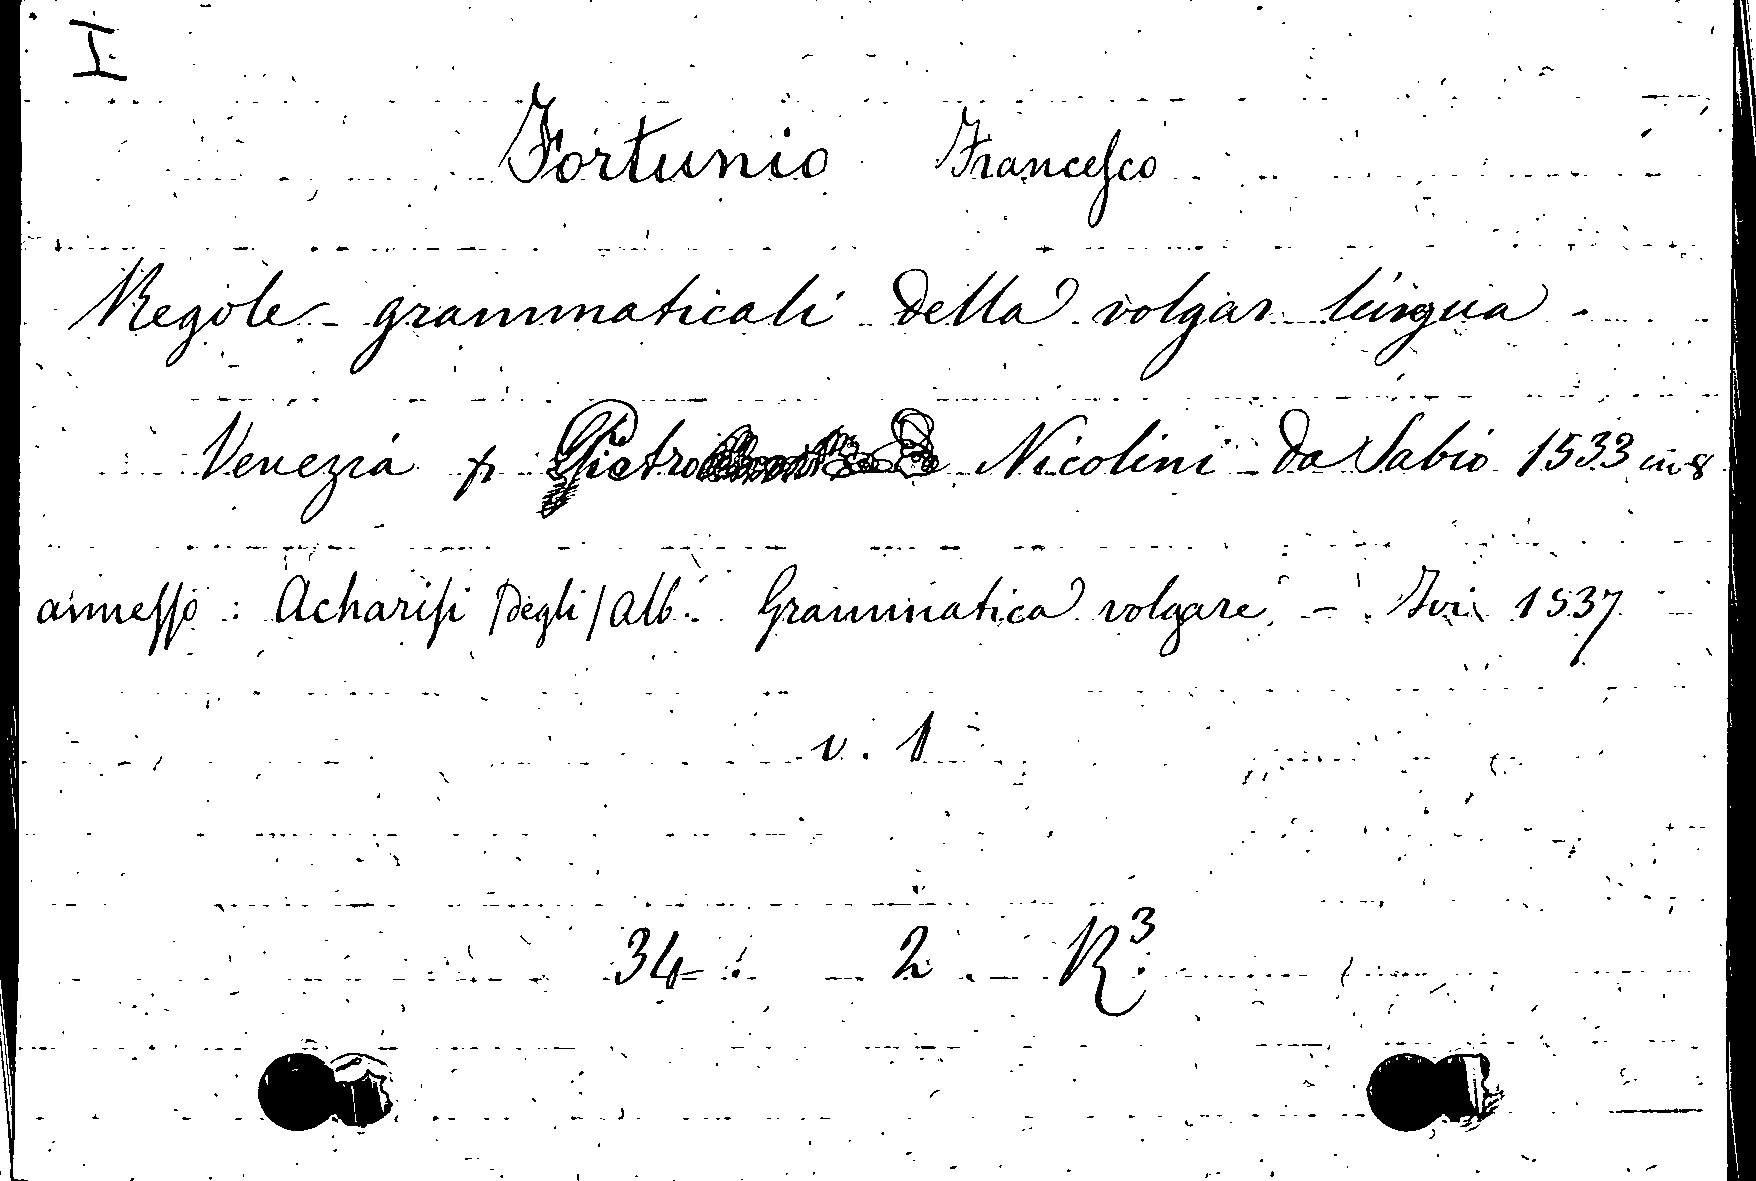 I
Fortunio Francesco
Regole grammaticali della volgar lingua -
Venezia p Pietro Nicolini da Sabio 1533 in 8
annesso : Acharisi /degli/ Alb. Grammatica volgare - Ivi 1537
v. 1
34. 2. R³.